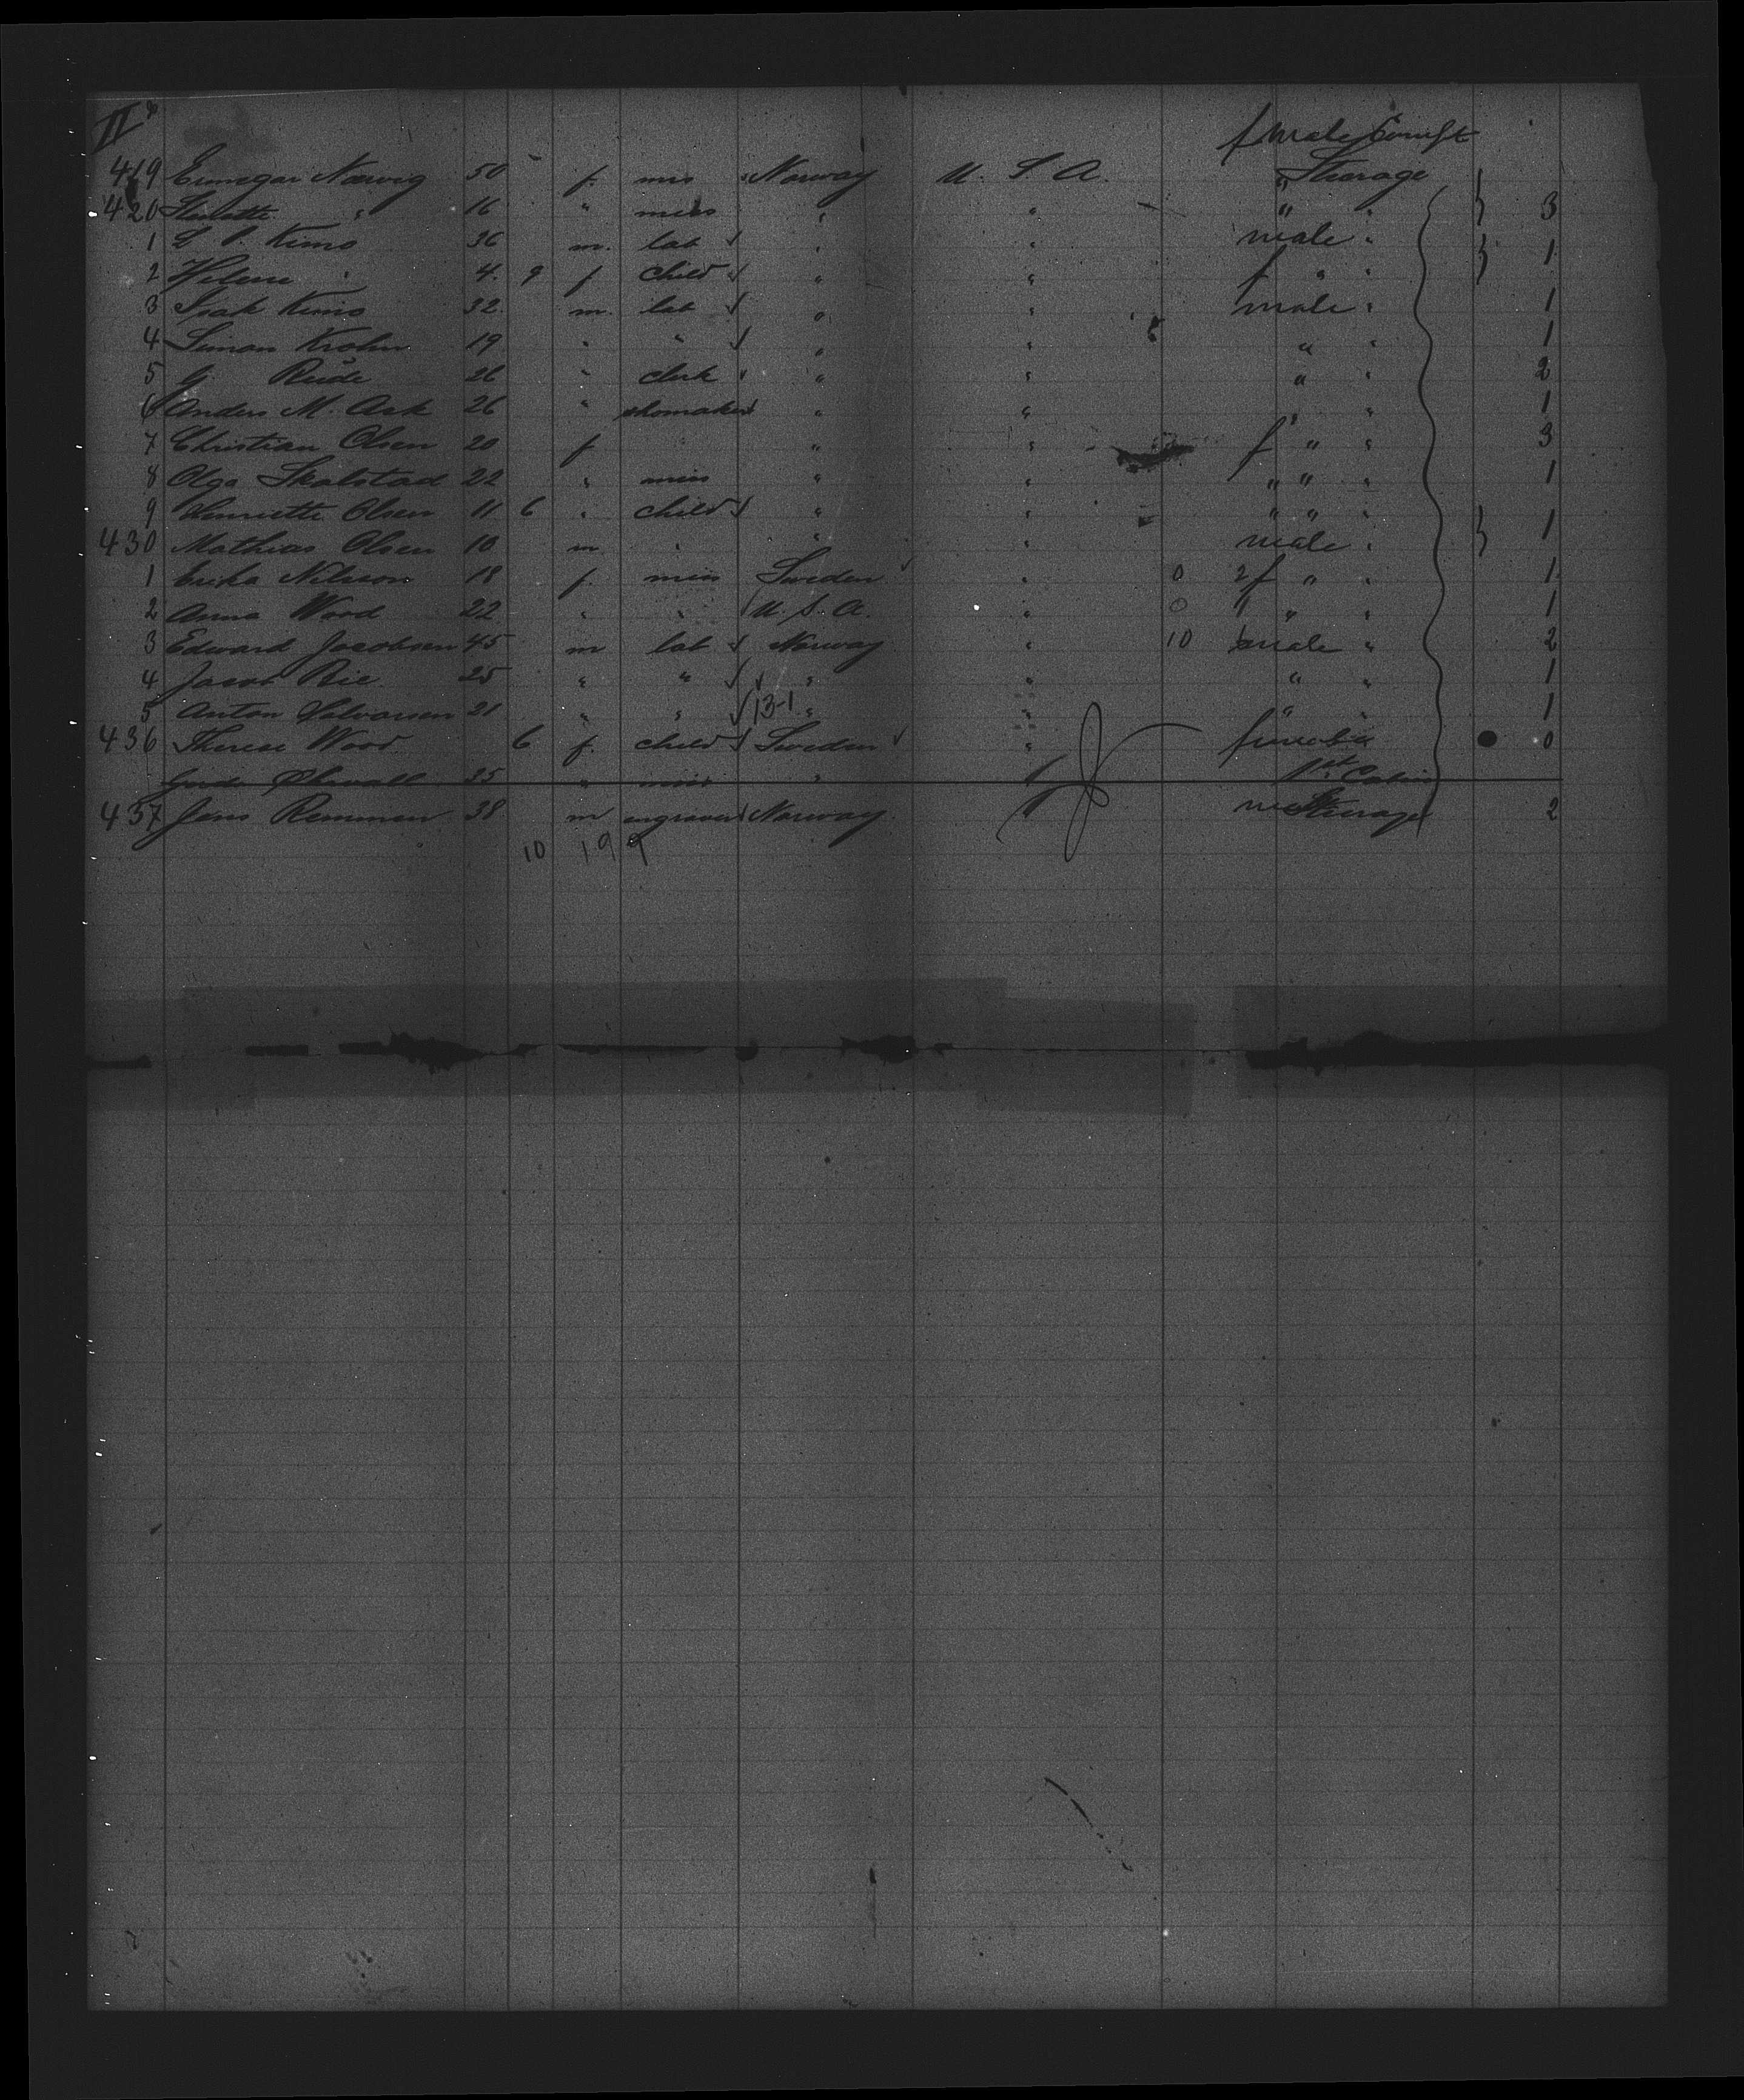 II
female Compt
419 Narvig 50 f. mrs Norway U. S. A. " Steerage
420 " 16 " miss " " " " 3
1 L P. Kimo 36 m. lab " " male " 1
2 Helene " 4. 9 f child " " f " "
3 Isak Kimo 32. m. lab " " male " 1
4 Simon Krohn 19 " " " " " " 1
5 G. Rude 26 " clerk " " " " 2
6 Anders M. Ask 26 " shomaker " " " " 1
7 Christian Olsen 20 f " " f " " 3
8 Olga Skalstad 22 " miss " " " " " 1
9 Henriette Olsen 11 6 " child " " " " " 1
430 Mathias Olsen 10 m " " " male "
1 Erika Nilsson 18 f. miss Sweden " 0 2 f " " 1
2 Anna Wood 22 " " U. S. A. " 0 " " " 1
3 Edward Jacobsen 45 m lab Norway " 10 male " 2
4 Jacob Rie 25 " " " " " " 1
5 Anton 21 " " 13-1 " " " " 1
436 Therese Wood 6 f. child Sweden " 0
35 " miss " " 1st Cabin
437 Jens Remmen 38 m engraver Norway " Steerage 2
10 199